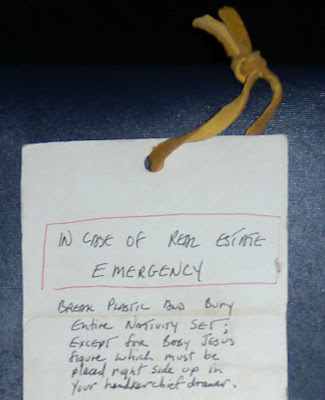 IN CASE OF REAL ESTATE
EMERGENCY
BREAK PLASTIC AND BURY
ENTIRE NATIVITY SET;
EXCEPT FOR BABY JESUS
figure which must be
placed right side up in
your handkerchief drawer.